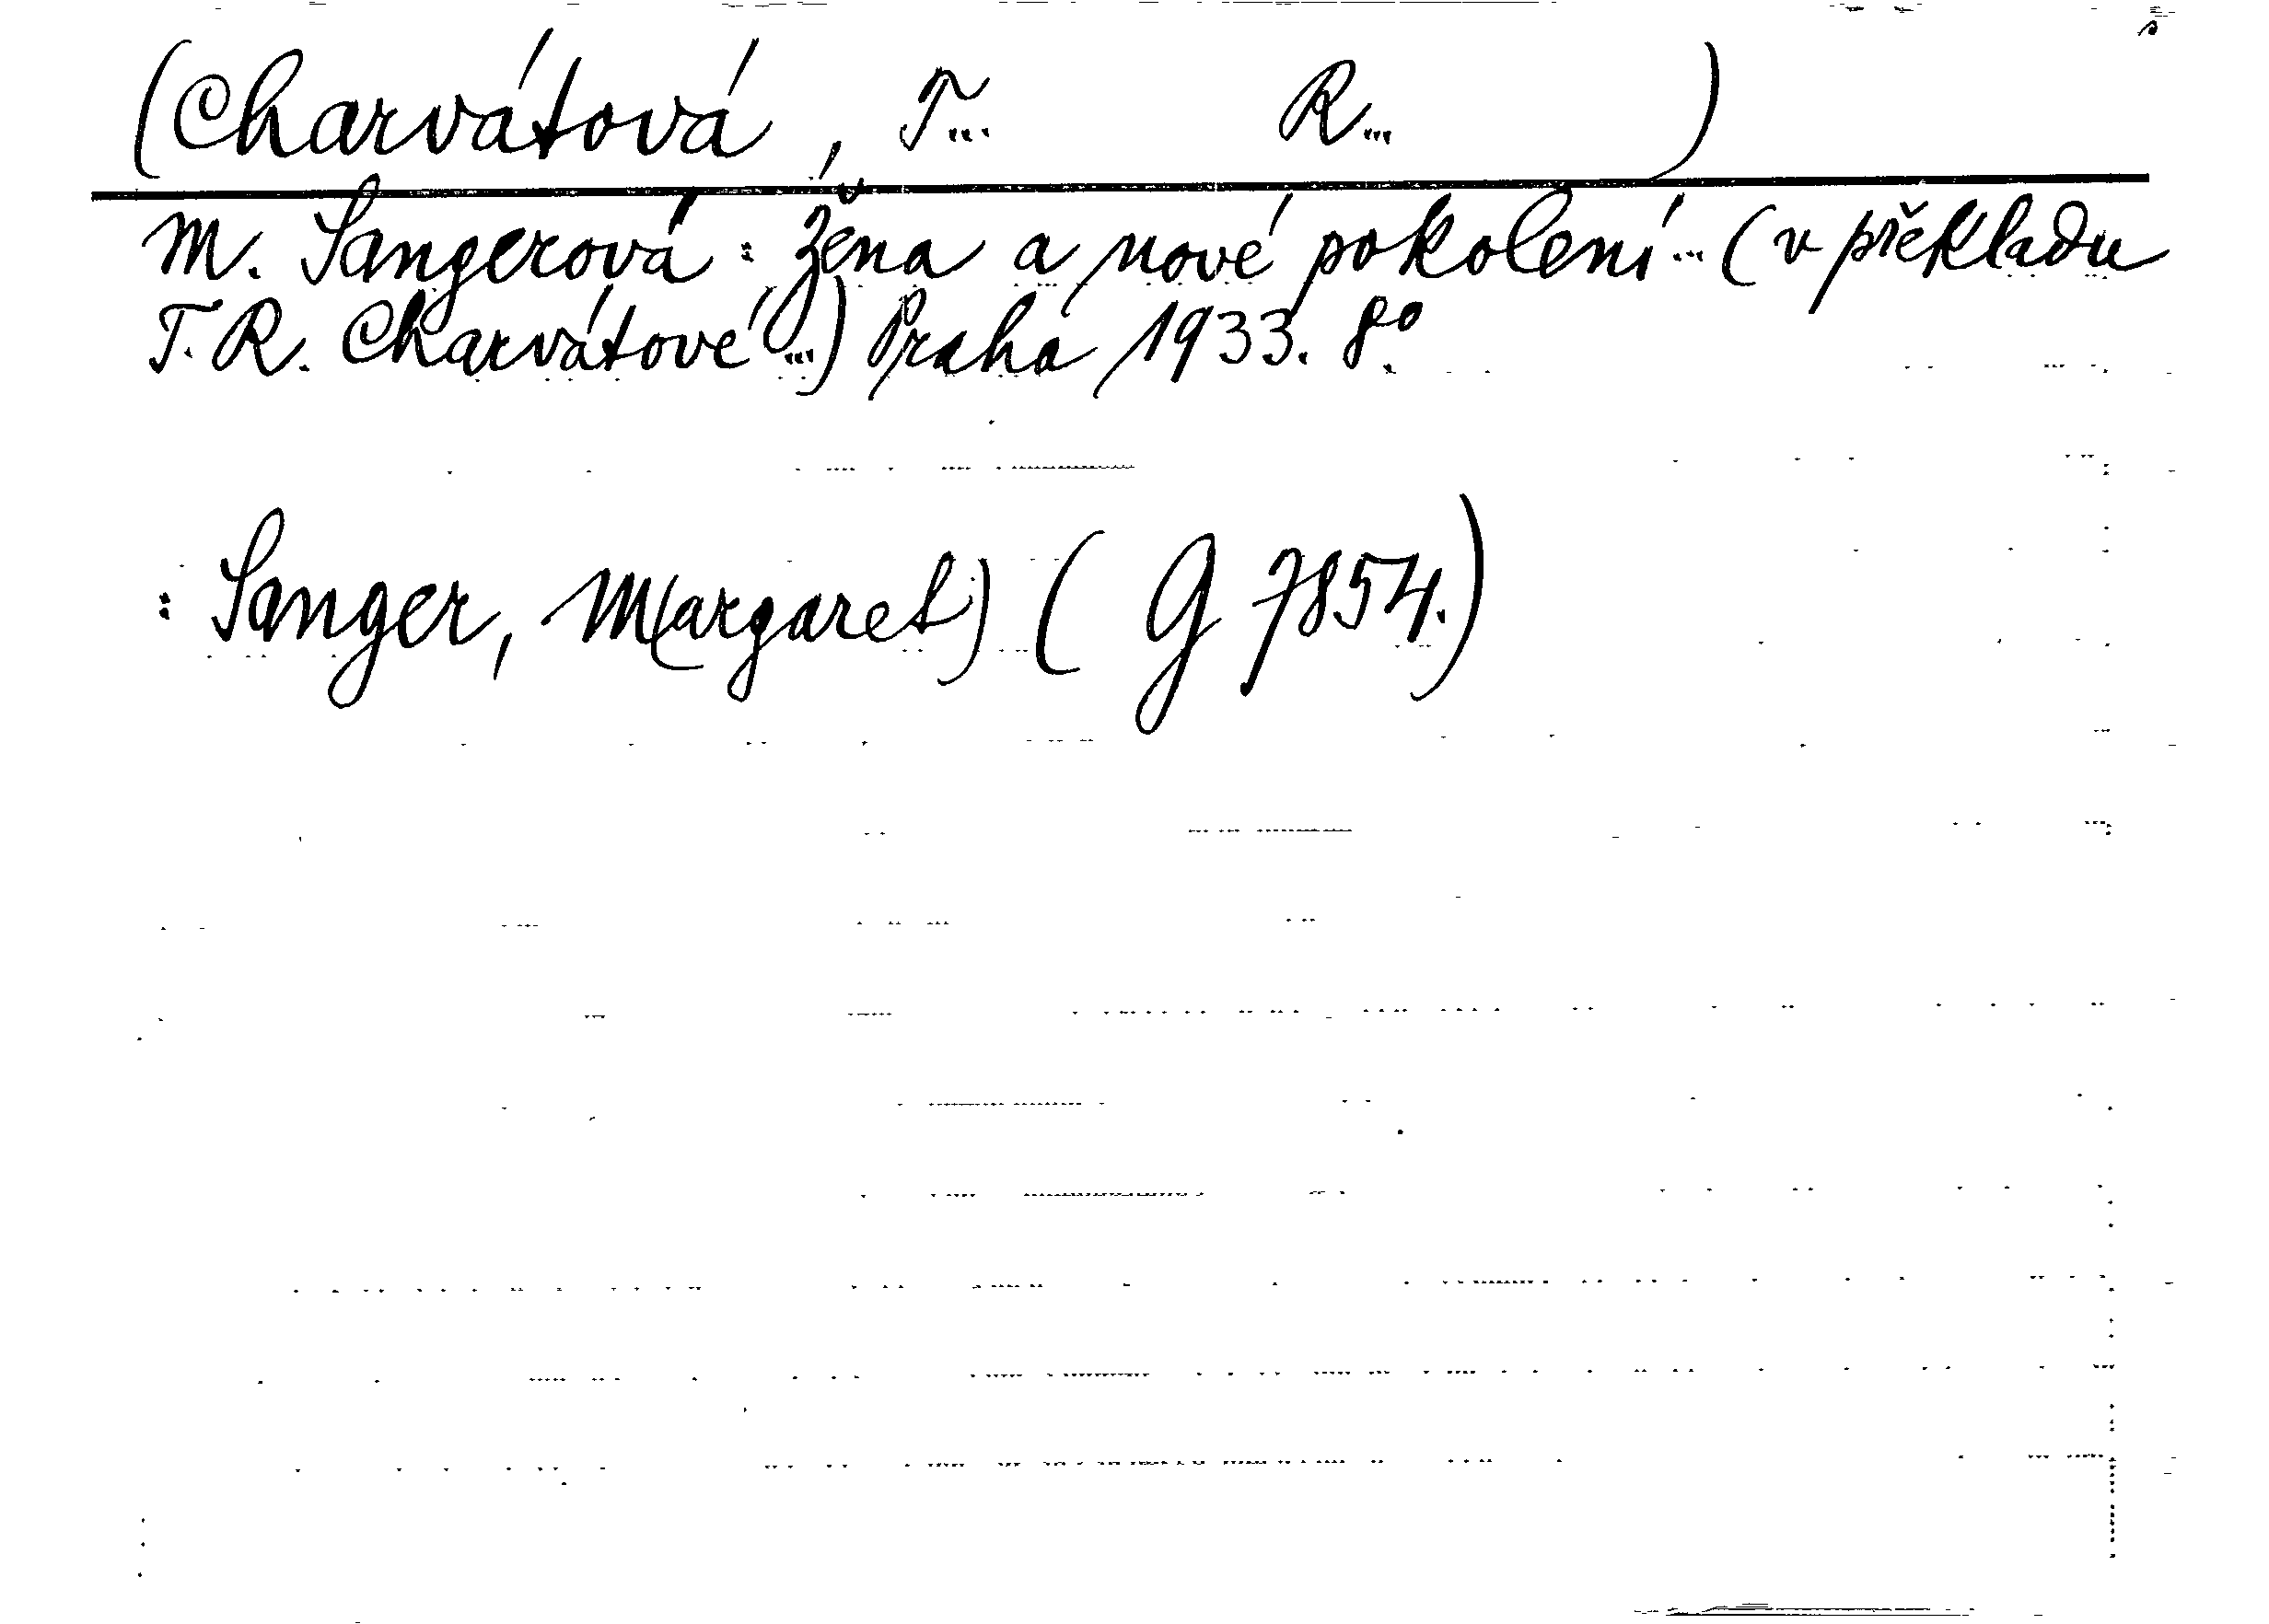 (Charvátová, T... R...)
M. Sangerová: Žena a nové pokolení... (v překladu
T. R. Charvátové...) Praha 1933. 8°.
: Sanger, M(argaret) (G 7854.)